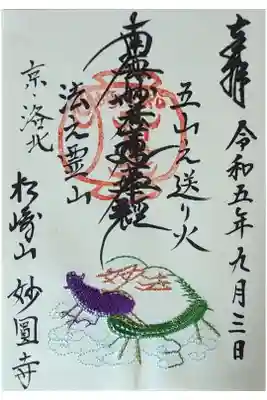 奉拝 令和五年九月三日
五山之送り火
南無妙法蓮華経
法之霊山
京洛北 松崎山 妙圓寺